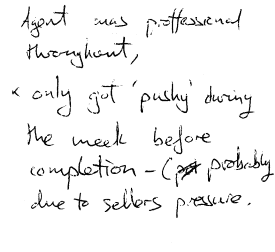 Agent was proffessional
throughout,
* only got 'pushy' during
the week before
completion - ( probably
due to sellers pressure.